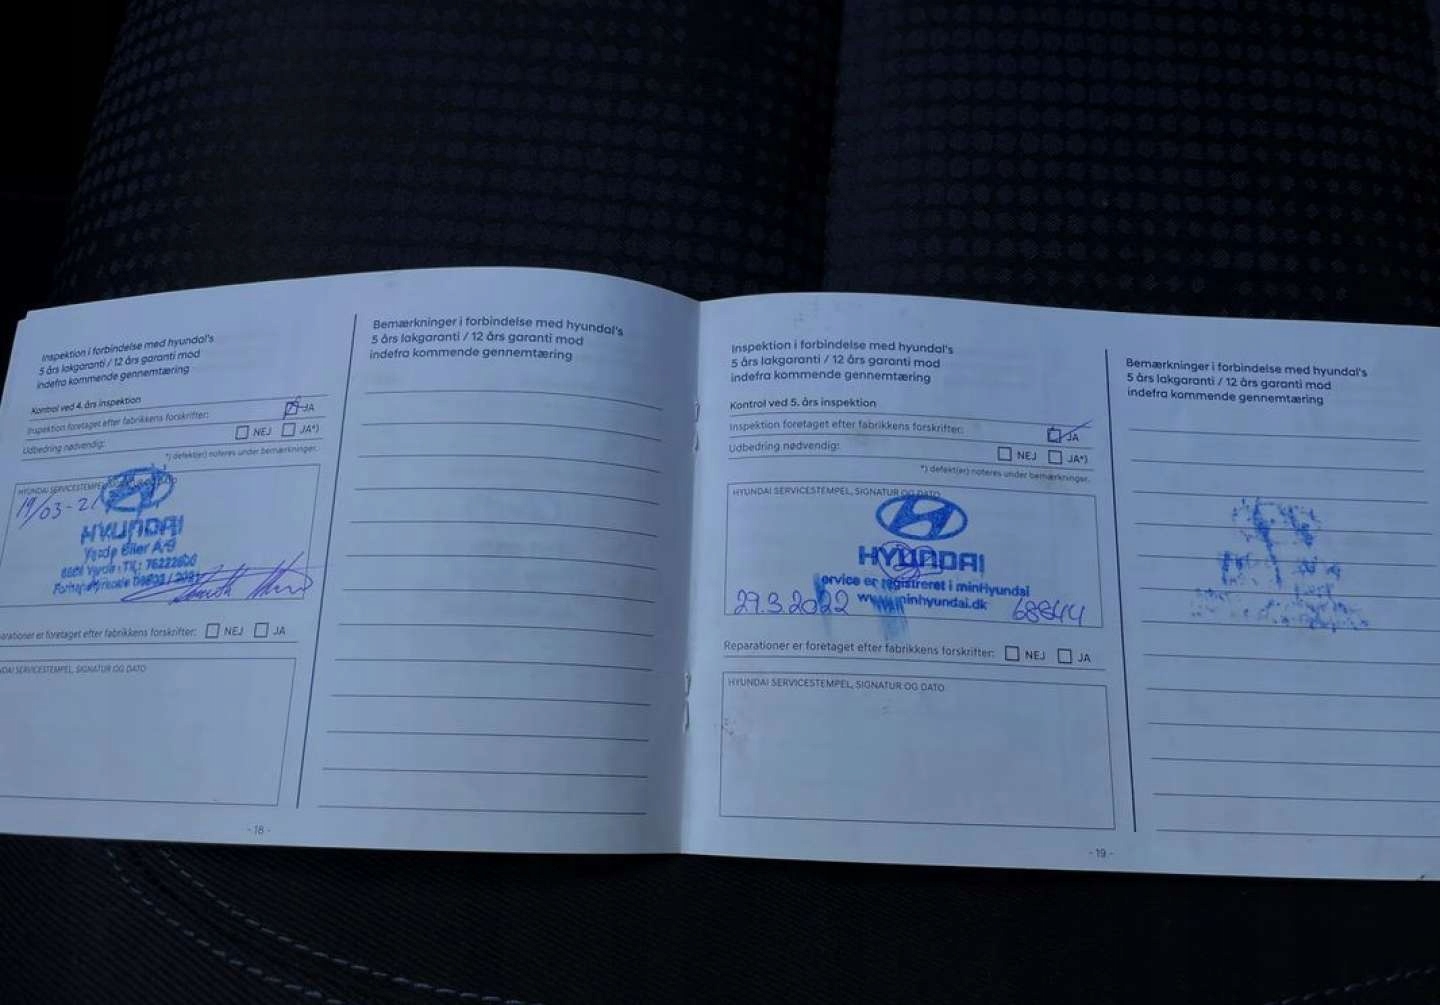 Inspektion i forbindelse med hyundai's
5 års lakgaranti / 12 års garanti mod
indefra kommende gennemtæring
Kontrol ved 4. års inspektion
Inspektion foretaget efter fabrikkens forskrifter: JA
Udbedring nødvendig: NEJ JA*)
*) defekt(er) noteres under bemærkninger.
HYUNDAI SERVICESTEMPEL
19/03-21
HYUNDAI
6800 Varde Tlf.: 76222600
parationer er foretaget efter fabrikkens forskrifter: NEJ JA
NDAI SERVICESTEMPEL, SIGNATUR OG DATO
- 18 -
Bemærkninger i forbindelse med hyundai's
5 års lakgaranti / 12 års garanti mod
indefra kommende gennemtæring
Inspektion i forbindelse med hyundai's
5 års lakgaranti / 12 års garanti mod
indefra kommende gennemtæring
Kontrol ved 5. års inspektion
Inspektion foretaget efter fabrikkens forskrifter: JA
Udbedring nødvendig: NEJ JA*)
*) defekt(er) noteres under bemærkninger.
HYUNDAI SERVICESTEMPEL, SIGNATUR OG DATO
HYUNDAI
ervice er registreret i minHyundai
www.minhyundai.dk
29.3.2022 68844
Reparationer er foretaget efter fabrikkens forskrifter: NEJ JA
HYUNDAI SERVICESTEMPEL, SIGNATUR OG DATO
- 19 -
Bemærkninger i forbindelse med hyundai's
5 års lakgaranti / 12 års garanti mod
indefra kommende gennemtæring